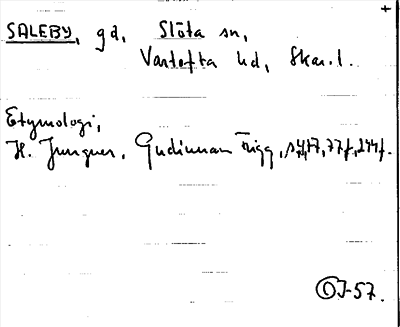 SALEBY, gd, Slöta sn,
Vartofta hd, Skar. l.
Etymologi,
H. Jungner, Gudinnan Frigg, s, 77f, 244f.
ÖJ-57.